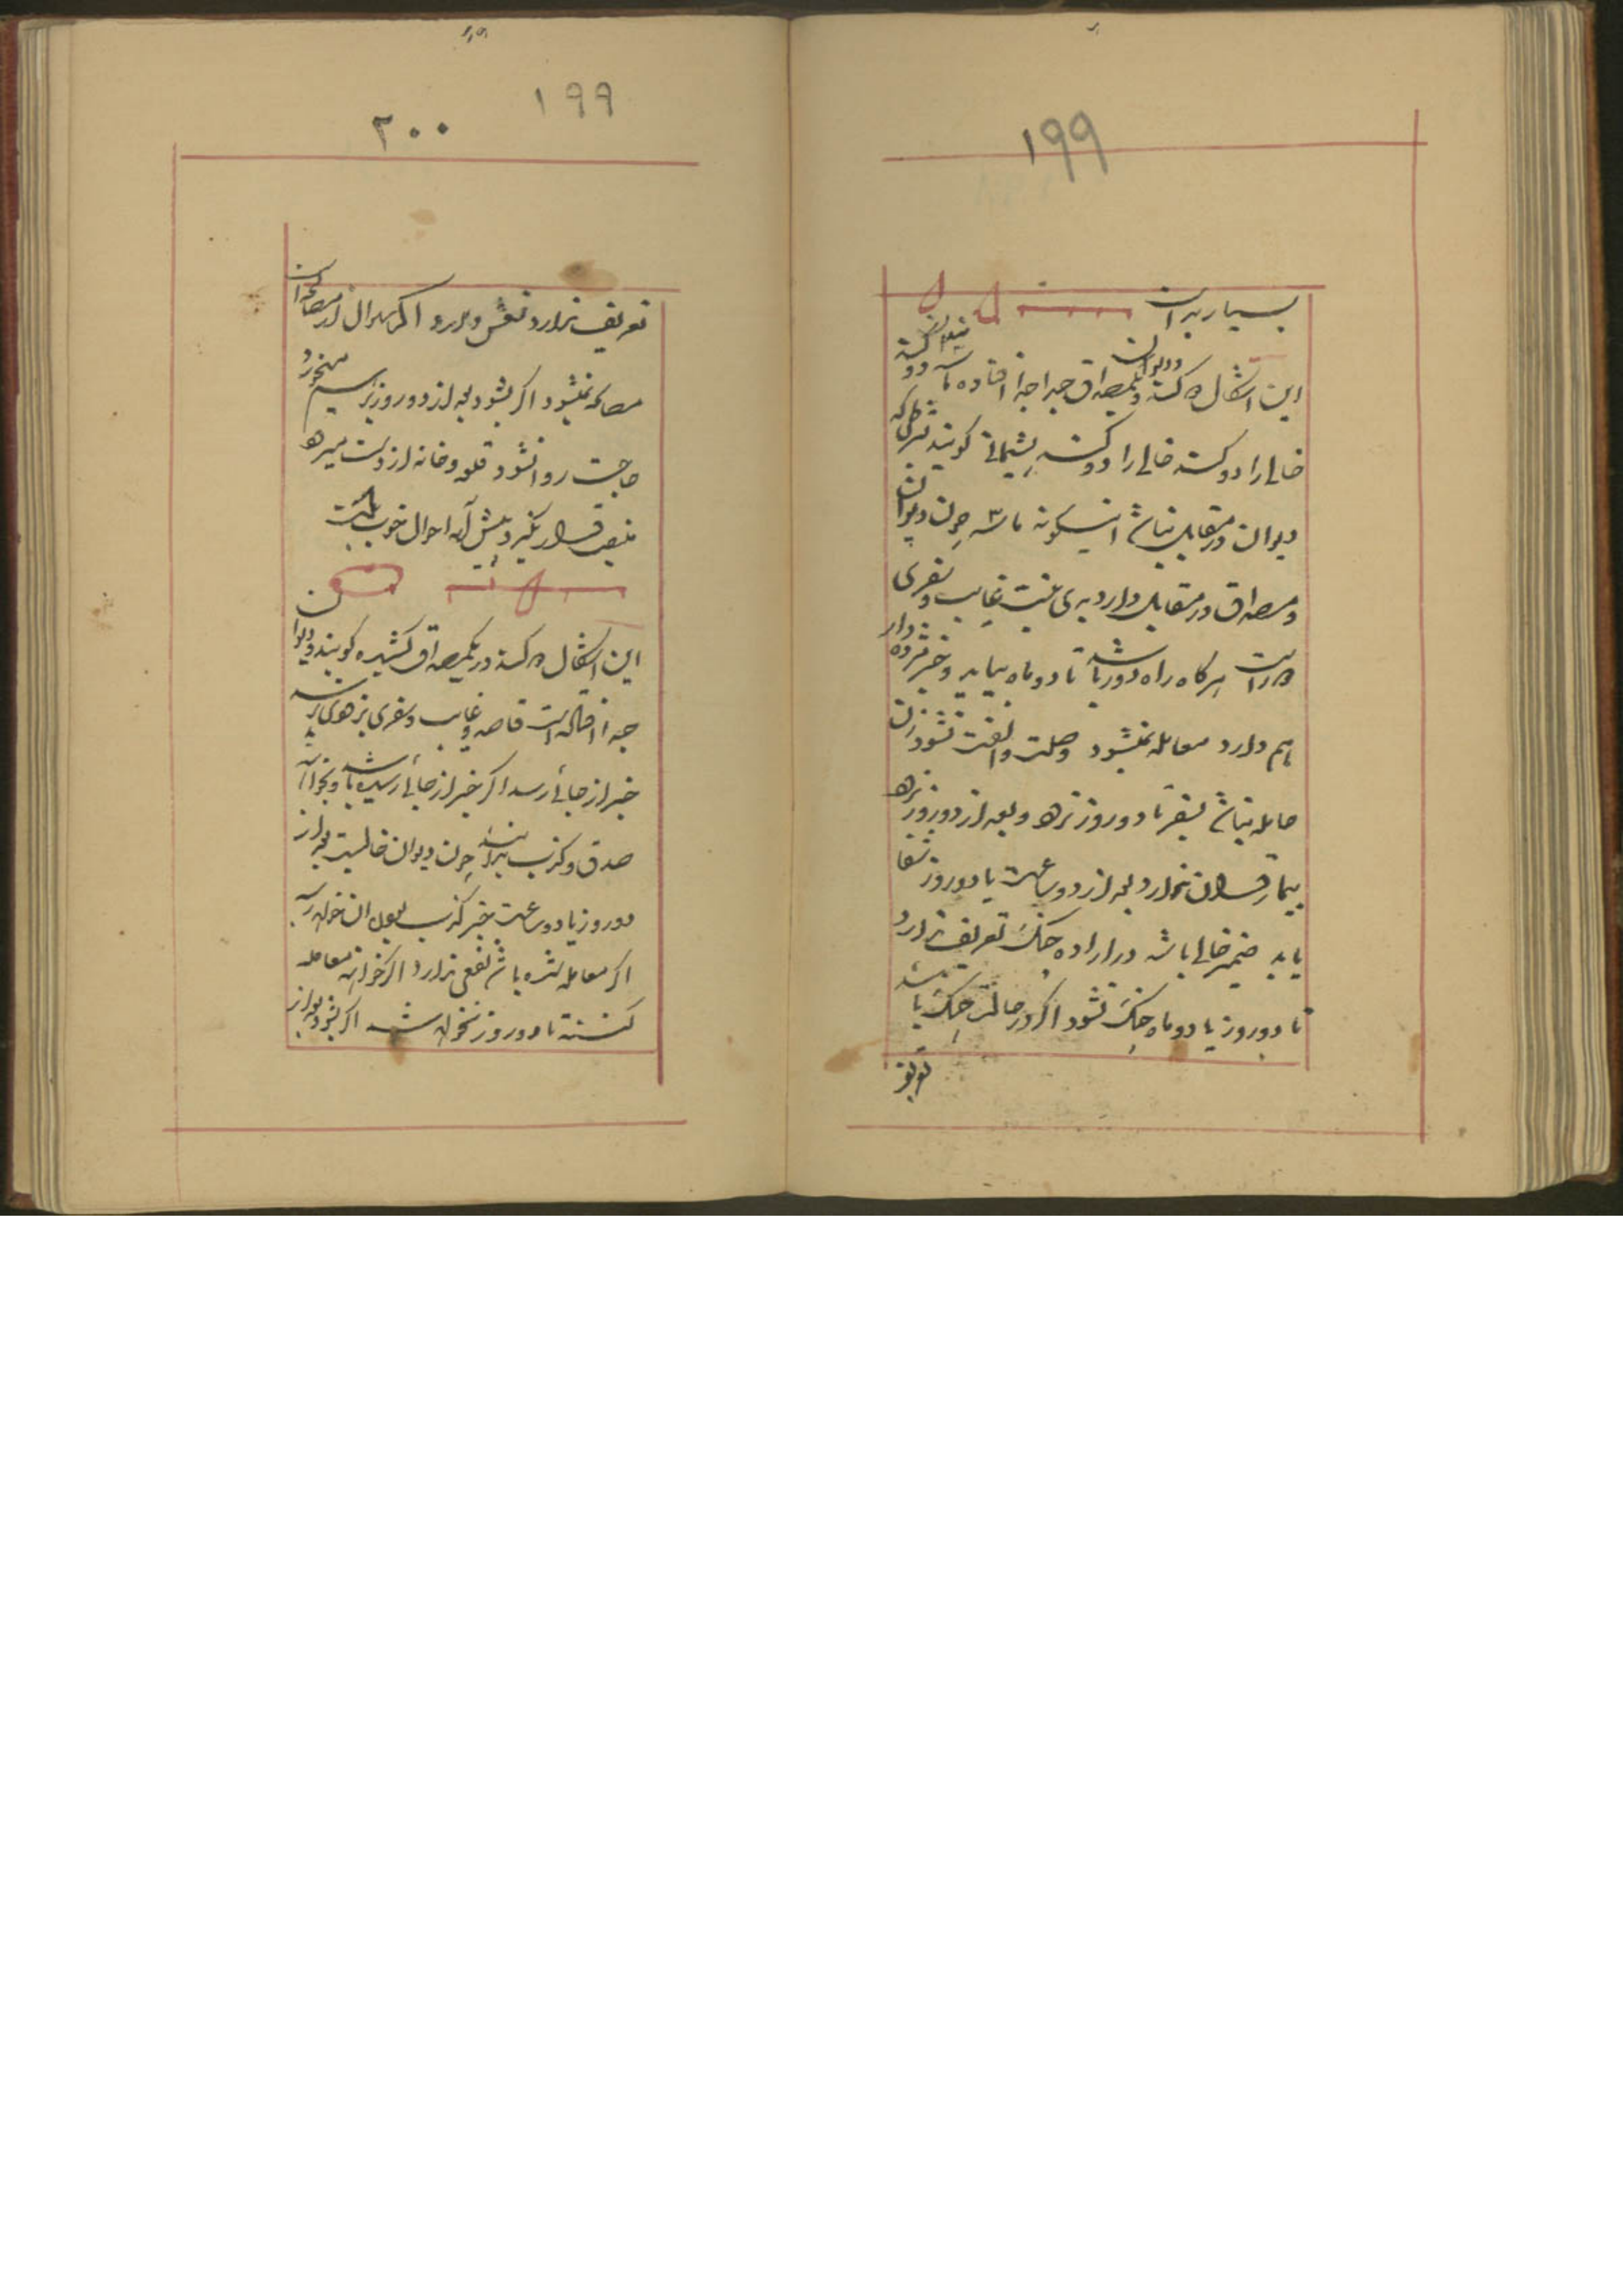 ۱۹۹
بسیار بد است
این اشکال ۵ کسته و یکمصداق جدا جدا افتاده باشد دو
خالی را دو کسته خالی را دو کسته پشیمانی گویند
دیوان در مقابل نباشد اینگونه باشد چون دیوان
و مصداق در مقابل دارد بدی نیت غایب و سفری
در راست هرگاه راه دور باشد تا دو ماه بیاید و خبر
هم دارد معامله نمیشود وصلت و الفت نشود زن
حامله نباشد بسفر تا دو روز نرود و بعد از دو روز برود
بیمار نخورد بعد از دو ساعت یا دو روز شفا
یابد ضمیر خالی باشد در اراده جنگ تعریف ندارد
تا دو روز یا دو ماه جنگ نشود اگر در حالت جنگ باشد
تعریف
۱۹۹
۲۰۰
تعریف ندارد نقش و بدرو اگر سوال از مصالحه است
مصالحه نمیشود اگر بشود بعد از دو روز
حاجت روا نشود قلعه و خانه از دست میرود
منصب قرار نگیرد پیش آمد احوال خوب نیست
این اشکال ۵ کسته در یکمصداق کشیده گویند و دیوان
جدا افتاده است قاصد و غایب و سفری بزودی برسد
خبر از جائی رسد اگر خبر از جائی رسیده باشد و بخواند
صدق و کذب بداند چون دیوان خالیست بعد از
دو روز یا دو ساعت خبر کذب بعد از آن خواهد رسید
اگر معامله شده باشد نفعی ندارد اگر خواهد معامله
کنند تا دو روز نخواهد شد اگر بشود بعد از